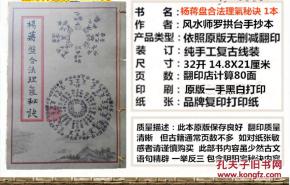 杨蒋盘合法理氣秘訣
书    名：杨蒋盘合法理氣秘訣 1本
作    者：风水师罗拱台手抄本
产品类型：依照原版无删减翻印
装    订：纯手工复古线装
尺    寸：32开 14.8X21厘米
页    数：翻印店计算80面
印    刷：原版一手黑白打印
纸    张：品牌复印打印纸
质量描述：此本原版保存良好 翻印质量
清晰 但古籍通常页数不多 如对纸张敏
感者请谨慎购买 此部书内容虽少然古文
语句精辟 一举反三 包含阴阳宅秘诀内容